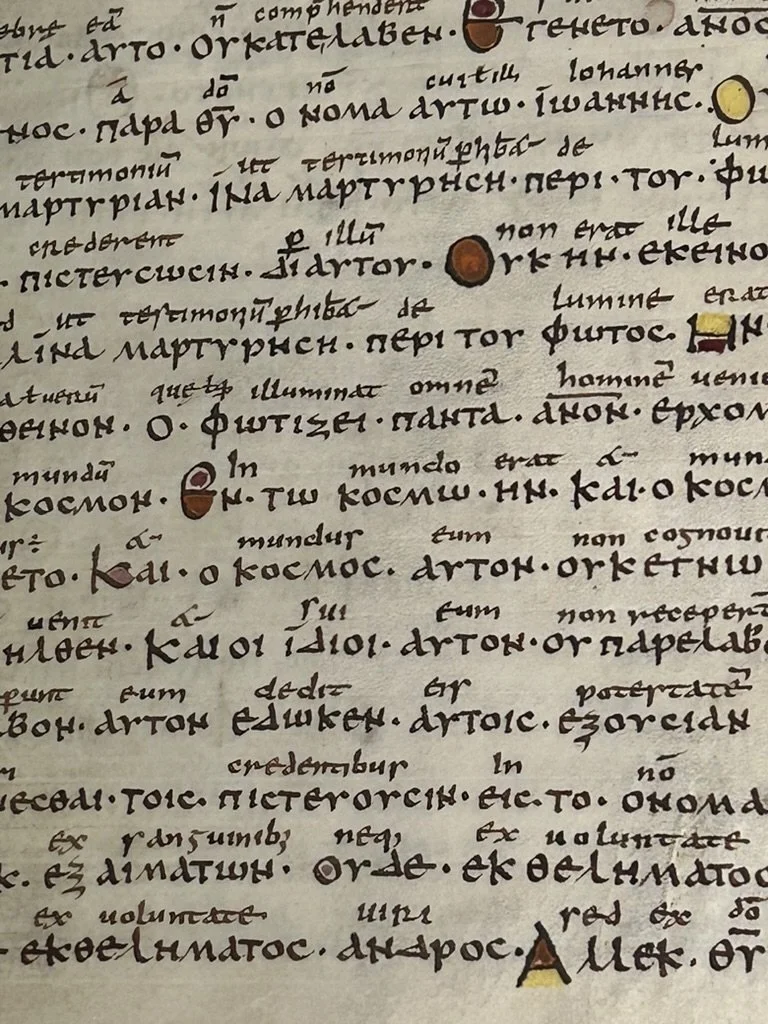 ebre eā n̄ comp̄hendent
ΤΙΑ · ΑΥΤΟ · ΟΥΚΑΤΕΛΑΒΕΝ · ΕΓΕΝΕΤΟ · ΑΝΟΣ
ā dō nō cui illi Iohannes
ΝΟΣ · ΠΑΡΑ Θ̅Υ̅ · Ο ΝΟΜΑ ΑΥΤΩ · ΪΩΑΝΝΗΣ · Ο
testimoniū ut testimonīū phibē& de lum
ΜΑΡΤΥΡΙΑΝ · ΪΝΑ ΜΑΡΤΥΡΗΣΗ · ΠΕΡΙ · ΤΟΥ · ΦΩ
crederent p illū non erat ille
· ΠΙΣΤΕΥΣΩΣΙΝ · ΔΙ ΑΥΤΟΥ · ΟΥΚ ΗΝ · ΕΚΕΙΝΟ
d ut testimonīū phibē& de lumine erat
ΛΛ ΪΝΑ ΜΑΡΤΥΡΗΣΗ · ΠΕΡΙ ΤΟΥ ΦΩΤΟΣ · ΗΝ
illuminat omnē hominē uenie
ΘΕΙΝΟΝ · Ο · ΦΩΤΙΖΕΙ · ΠΑΝΤΑ · Α̅Ν̅Ο̅Ν̅ · ΕΡΧΟΜ
mundū In mundo erat & mun
ΚΟΣΜΟΝ · ΕΝ · ΤΩ ΚΟΣΜΩ · ΗΝ · ΚΑΙ · Ο ΚΟΣΜ
& mundus eum non cognouit
ΕΤΟ · ΚΑΙ · Ο ΚΟΣΜΟΣ · ΑΥΤΟΝ · ΟΥΚ ΕΓΝΩ
uenit & sui eum non receper̄
ΗΛΘΕΝ · ΚΑΙ ΟΙ ΪΔΙΟΙ · ΑΥΤΟΝ · ΟΥ ΠΑΡΕΛΑΒΟ
perunt eum dedit eis potestatē
ΑΒΟΝ · ΑΥΤΟΝ ΕΔΩΚΕΝ · ΑΥΤΟΙΣ · ΕΞΟΥΣΙΑΝ
credentibus In nō
ΝΕΣΘΑΙ · ΤΟΙΣ · ΠΙΣΤΕΥΟΥΣΙΝ · ΕΙΣ · ΤΟ · ΟΝΟΜΑ
ex sanguinib; neq; ex uoluntate
Κ · ΕΞ ΑΙΜΑΤΩΝ · ΟΥΔΕ · ΕΚ ΘΕΛΗΜΑΤΟΣ
ex uoluntate uiri sed ex dō
ΕΚΘΕΛΗΜΑΤΟΣ · ΑΝΔΡΟΣ · ΑΛΛΕΚ · Θ̅Υ̅